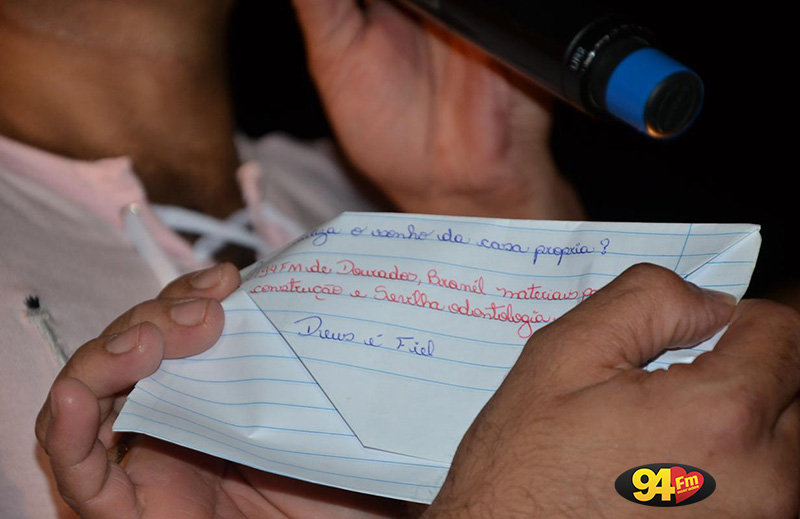 o sonho da casa propria?
94 FM de Dourados, Brasil materiais
construção e Sevilha odontologia
Deus é Fiel
94 Fm